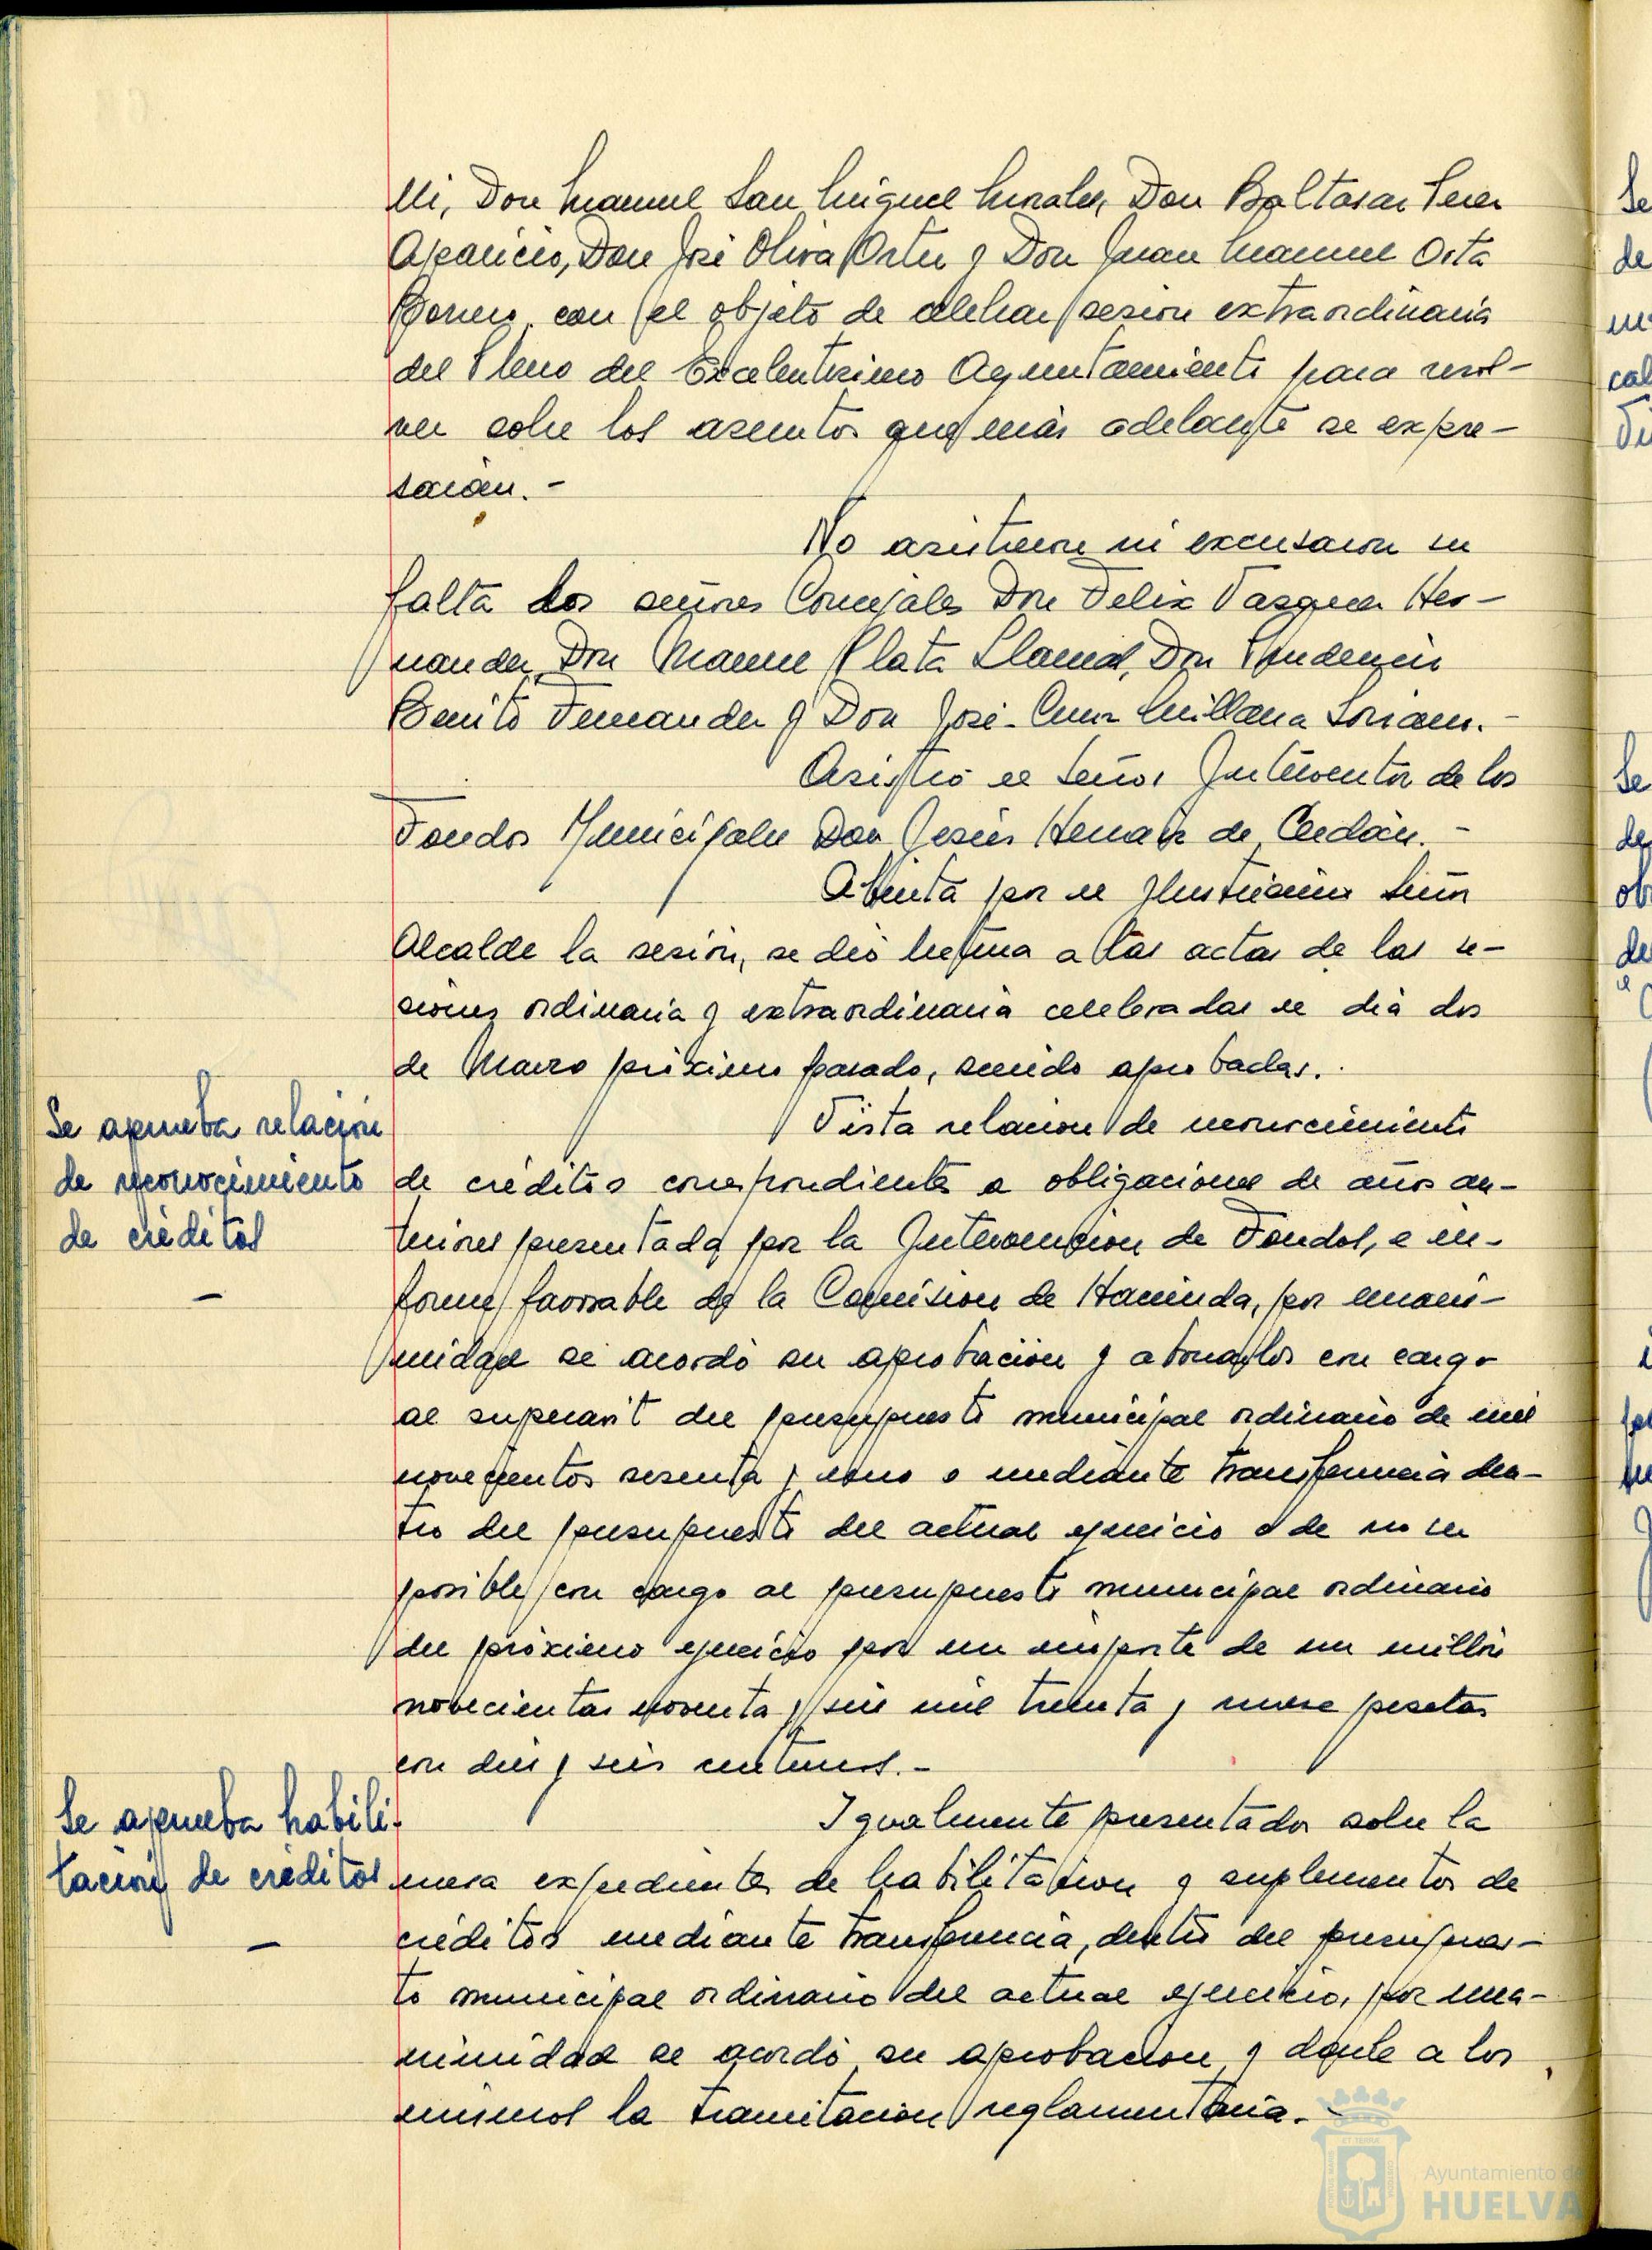 Mi, Don Manuel San Miguel Morales, Don Baltasar Perez
Aparicio, Don José Oliva Ortiz y Don Juan Manuel Orta
Borrero, con el objeto de celebrar sesion extraordinaria
del Pleno del Excelentisimo Ayuntamiento para resol-
ver sobre los asuntos que más adelante se expre-
sarán.-
No asistieron ni excusaron su
falta los señores Concejales Don Felix Vazquez Her-
nandez, Don Manuel Plata Llamas, Don Prudencio
Benito Fernandez y Don José-Cruz Millana Soriano.-
Asistió el Señor Interventor de los
Fondos Municipales Don Jesús Hernaiz de Cerdán.-
Abierta por el Ilustrisimo Señor
Alcalde la sesión, se dió lectura a las actas de las se-
siones ordinaria y extraordinaria celebradas el dia dos
de Marzo próximo pasado, siendo aprobadas.
Se aprueba relación
de reconocimiento
de créditos
Vista relacion de reconocimiento
de créditos correspondientes a obligaciones de años an-
teriores presentada por la Intervencion de Fondos, e in-
forme favorable de la Comision de Hacienda, por unani-
midad se acordó su aprobación y abonarlos con cargo
al superavit del presupuesto municipal ordinario de mil
novecientos sesenta y uno o mediante transferencia den-
tro del presupuesto del actual ejercicio o de no ser
posible con cargo al presupuesto municipal ordinario
del próximo ejercicio por un importe de un millón
novecientas noventa y seis mil treinta y nueve pesetas
con diez y seis centimos.-
Se aprueba habili-
tación de créditos
Igualmente presentados sobre la
mesa expedientes de habilitacion y suplementos de
créditos mediante transferencia, dentro del presupues-
to municipal ordinario del actual ejercicio, por una-
nimidad se acordó su aprobacion y darle a los
mismos la tramitacion reglamentaria.-
Ayuntamiento de
HUELVA